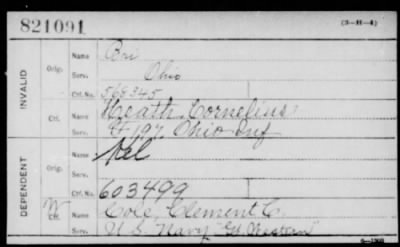 821091
(3-H-4)
INVALID
Orig.
Name Bri
Serv. Ohio
Ctf. No. 568345
Ctf.
Name Heath, Cornelius
Serv. 197, Ohio Inf
DEPENDENT
Orig.
Name Hel
Serv.
Ctf. No. 603499
W Ctf.
Name Cole, Clement C.
Serv. U.S. Navy "Gt. Western"